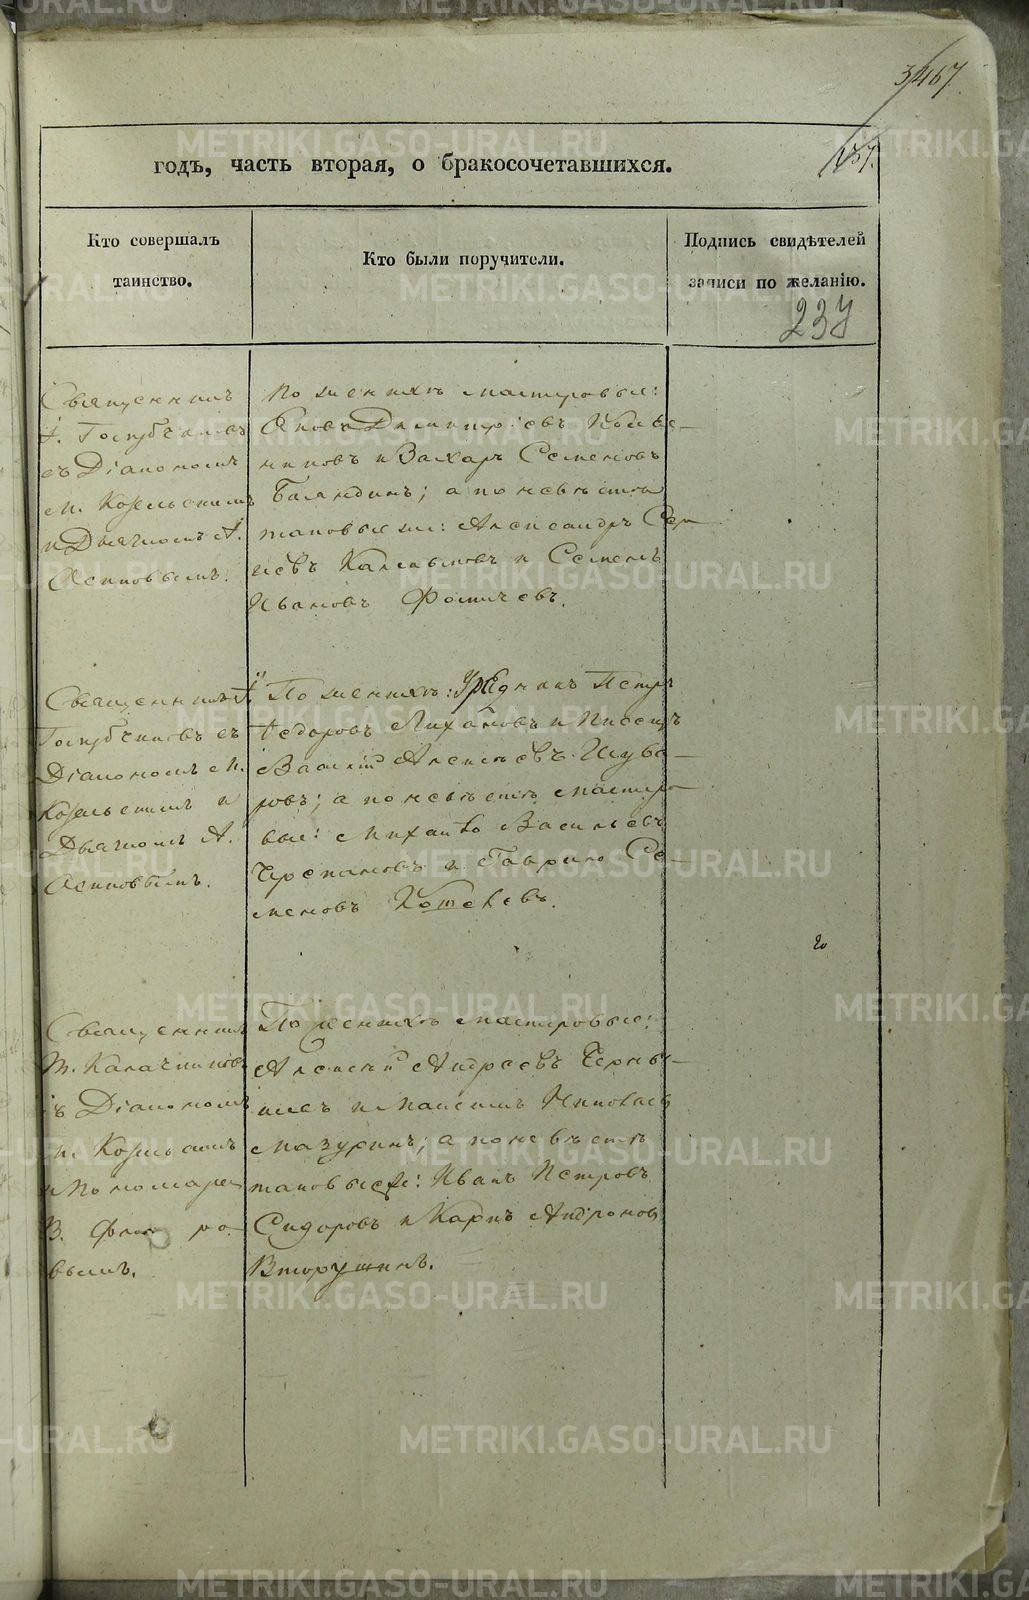 3467
237.
годъ, часть вторая, о бракосочетавшихся.
Кто совершалъ
таинство.
Кто были поручители.
Подпись свидѣтелей
записи по желанію.
237
Священникъ
съ Діакономъ
М. Козельскимъ
и Дьячкомъ А.
Осиповымъ.
По женихѣ мастеровые:
Яковъ Димитріевъ
и Захаръ Семеновъ
Баландинъ; а по невѣстѣ
таковые же: Александръ Сер-
Семенъ
Ивановъ Фомичевъ.
Священникъ
съ
Діакономъ М.
Козельскимъ и
Дьячкомъ А.
Осиповымъ.
По женихѣ: Урядникъ Петръ
Ѳедоровъ и Писецъ
Василій Алексѣевъ Шува-
ровъ; а по невѣстѣ мастеро-
вые: Михайло Васильевъ
Черепановъ и Гаврило Се-
меновъ
Священникъ
Т. Калачниковъ
съ Діакономъ
М. Козельскимъ
и Пономаремъ
В. Флоровымъ.
По женихѣ мастеровые:
Алексѣй Андреевъ Черны-
шевъ и Максимъ Николаевъ
Мазуринъ; а по невѣстѣ
таковые же: Иванъ Петровъ
Сидоровъ и Карпъ Андроновъ
Вторушинъ.
METRIKI.GASO-URAL.RU